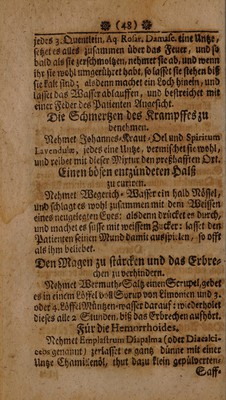 (48)
jedes 3. Quentlein. Aq. Rosar. Damasc. eine Untze,
setzet es alles zusammen über das Feuer, und so
bald als sie zerschmoltzen, nehmet sie ab, und wenn
ihr sie wohl umgerühret habt, so lasset sie stehen biß
sie kalt sind; alsdenn machet ein Loch hinein, und
lasset das Wasser ablauffen, und bestreichet mit
einer Feder des Patienten Angesicht.
Die Schmertzen des Krampffes zu
benehmen.
Nehmet Johannes-Kraut-Oel und Spiritum
Lavendulæ, jedes eine Untze, vermischet sie wohl,
und reibet mit dieser Mixtur den preßhafften Ort.
Einen bösen entzündeten Halß
zu curiren.
Nehmet Wegerich-Wasser ein halb Nössel,
und schlagt es wohl zusammen mit dem Weissen
eines neugelegten Eyes: alsdenn drücket es durch,
und machet es süsse mit weissem Zucker: lasset den
Patienten seinen Mund damit ausspülen, so offt
als ihm beliebet.
Den Magen zu stärcken und das Erbre-
chen zu verhindern.
Nehmet Wermuth-Saltz einen Scrupel, gebet
es in einem Löffel voll Syrup von Limonien und 3.
oder 4. Löffel Müntzen-Wasser darauf: wiederholet
dieses alle 2 Stunden, biß das Erbrechen aufhört.
Für die Hemorrhoides.
Nehmet Emplastrum Diapalma (oder Diacalci-
teos genannt) zerlasset es gantz dünne mit einer
Untze Chamillenöl, thut dazu klein gepülverten
Saff-